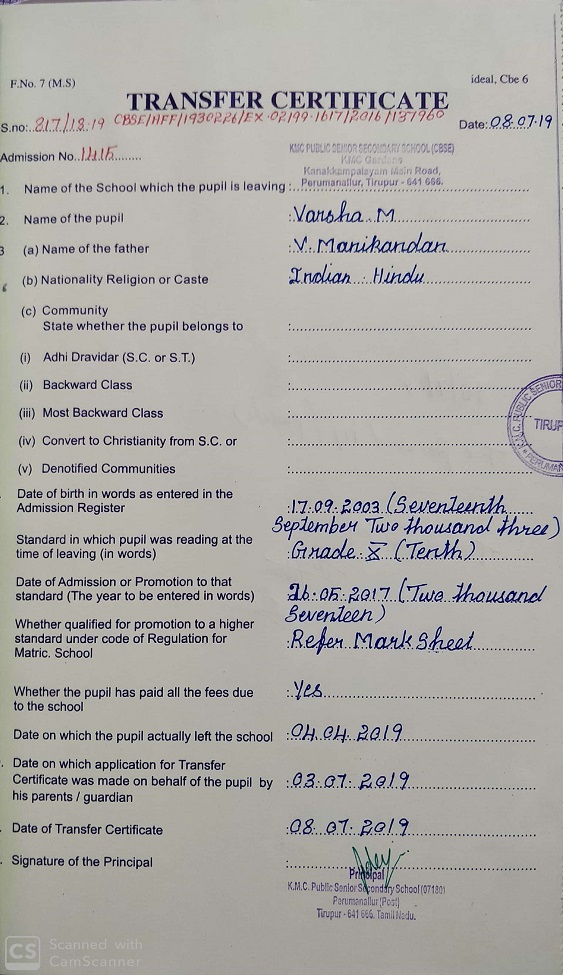 F.No. 7 (M.S)
ideal, Cbe 6
TRANSFER CERTIFICATE
S.no: 217/18-19 CBSE/AFF/1930226/EX-02199-1617/2016/137960
Date: 08.07.19
Admission No. 1415
KMC PUBLIC SENIOR SECONDARY SCHOOL (CBSE)
KMC Gardens
Kanakkampalayam Main Road,
1. Name of the School which the pupil is leaving : Perumanallur, Tirupur - 641 666.
2. Name of the pupil : Varsha M
3 (a) Name of the father : V. Manikandan
(b) Nationality Religion or Caste Indian : Hindu
(c) Community
State whether the pupil belongs to :
(i) Adhi Dravidar (S.C. or S.T.) :
(ii) Backward Class :
(iii) Most Backward Class :
(iv) Convert to Christianity from S.C. or :
(v) Denotified Communities :
K.M.C. PUBLIC SENIOR
TIRUP
PERUMAN
Date of birth in words as entered in the
Admission Register : 17.09.2003 (Seventeenth
September Two thousand three)
Standard in which pupil was reading at the
time of leaving (in words) : Grade X (Tenth)
Date of Admission or Promotion to that
standard (The year to be entered in words) 26.05.2017 (Two thousand
Seventeen)
Whether qualified for promotion to a higher
standard under code of Regulation for : Refer Mark Sheet
Matric. School
Whether the pupil has paid all the fees due : Yes
to the school
Date on which the pupil actually left the school : 04.04.2019
Date on which application for Transfer
Certificate was made on behalf of the pupil by : 03.07.2019
his parents / guardian
Date of Transfer Certificate : 08.07.2019
Signature of the Principal :
Principal
K.M.C. Public Senior Secondary School (07180)
Perumanallur (Post)
Tirupur - 641 666. Tamil Nadu.
CS Scanned with
CamScanner